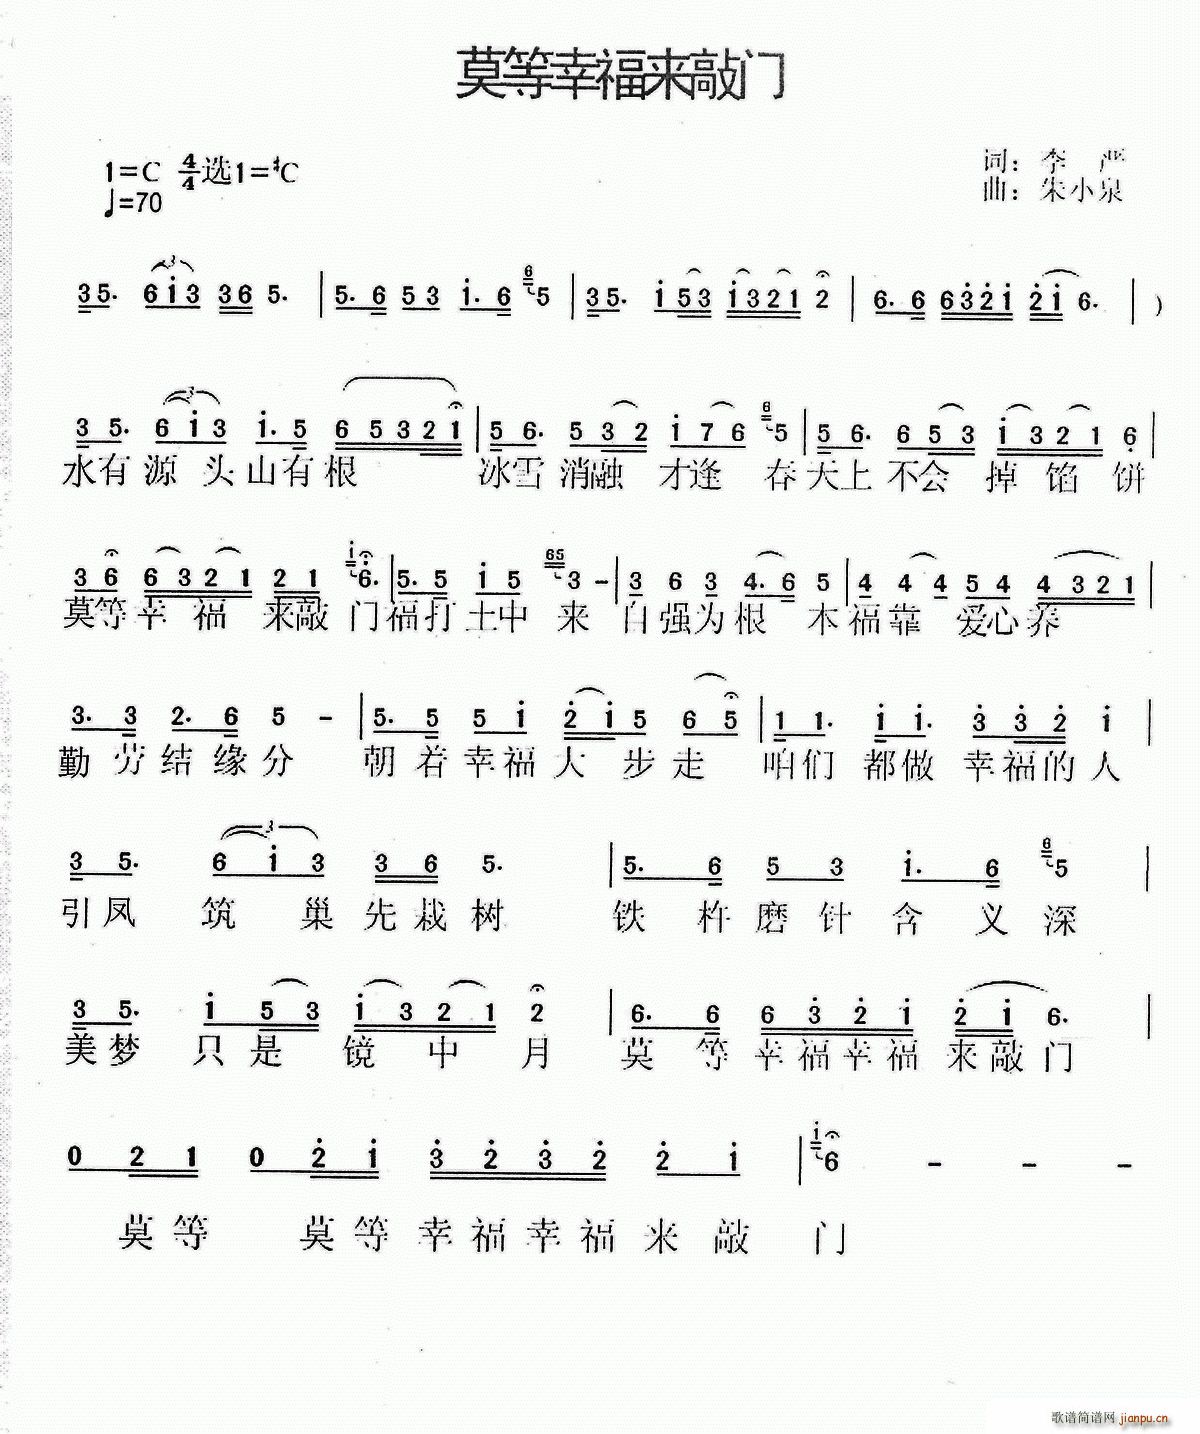 莫等幸福来敲门
1=C 4/4 选1=#C
词：李 严
♩=70
曲：朱小泉
3 5. 6 i 3 3 6 5. | 5. 6 5 3 i. 6 6 5 | 3 5. i 5 3 i 3 2 1 2 | 6. 6 6 3 2 i 2 i 6. | )
3 5. 6 i 3 i. 5 6 5 3 2 1 | 5 6. 5 3 2 i 7 6 6 5 | 5 6. 6 5 3 i 3 2 1 6 |
水有 源 头山有根 冰雪 消融 才逢 春天上 不会 掉 馅 饼
3 6 6 3 2 1 2 1 i 6. | 5. 5 i 5 65 3 - | 3 6 3 4. 6 5 | 4 4 4 5 4 4 3 2 1 |
莫等 幸 福 来敲 门福打 土中 来 自强为根 本福靠 爱心养
3. 3 2. 6 5 - | 5. 5 5 i 2 i 5 6 5 | 1 1. i i. 3 3 2 i |
勤 劳 结 缘 分 朝 着 幸 福 大 步 走 咱们 都做 幸福的人
3 5. 6 i 3 3 6 5. | 5. 6 5 3 i. 6 6 5 |
引凤 筑 巢 先栽树 铁 杵 磨 针 含 义 深
3 5. i 5 3 i 3 2 1 2 | 6. 6 6 3 2 i 2 i 6. |
美梦 只是 镜 中 月 莫 等 幸福幸福 来敲门
0 2 1 0 2 i 3 2 3 2 2 i | i 6 - - -
莫等 莫等幸福幸福来 敲 门
歌谱简谱网 jianpu.cn